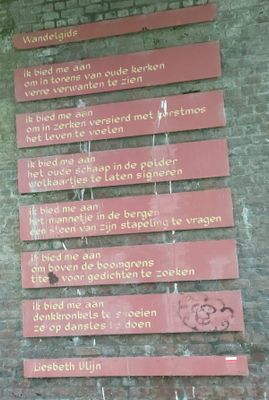 Wandelgids
ik bied me aan
om in torens van oude kerken
verre verwanten te zien
ik bied me aan
om in zerken versierd met korstmos
het leven te voelen
ik bied me aan
het oude schaap in de polder
wolkaartjes te laten signeren
ik bied me aan
het mannetje in de bergen
een steen van zijn stapeling te vragen
ik bied me aan
om boven de boomgrens
titels voor gedichten te zoeken
ik bied me aan
denkkronkels te snoeien
ze op dansles te doen
Liesbeth Ulijn